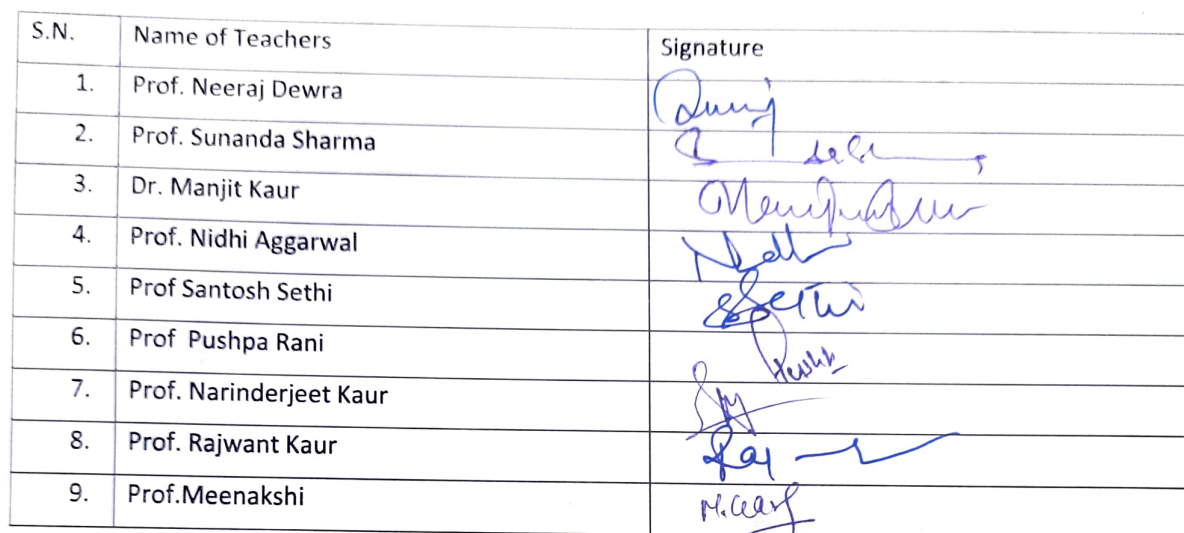 S.N. Name of Teachers Signature
1. Prof. Neeraj Dewra
2. Prof. Sunanda Sharma
3. Dr. Manjit Kaur
4. Prof. Nidhi Aggarwal Nidhi
5. Prof Santosh Sethi SSethi
6. Prof Pushpa Rani Pushpa
7. Prof. Narinderjeet Kaur
8. Prof. Rajwant Kaur Raj
9. Prof.Meenakshi M.Garg